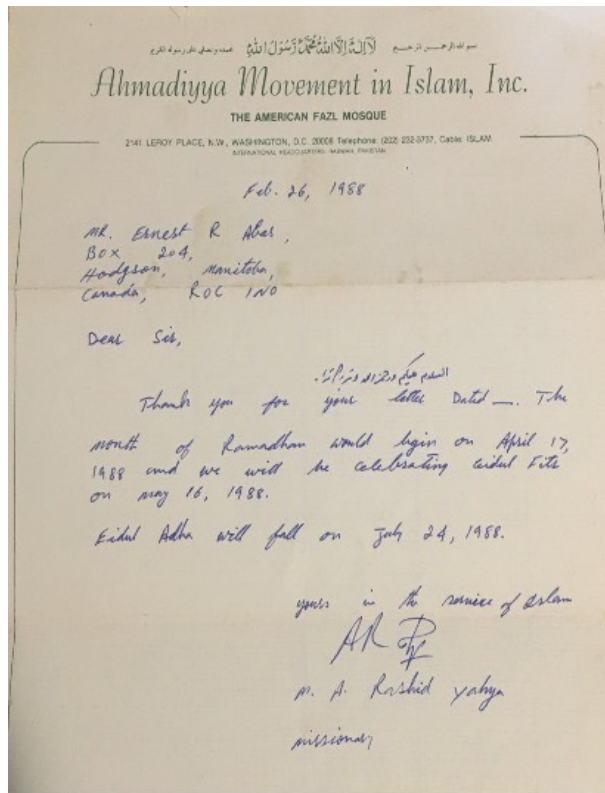 بسم الله الرحمن الرحيم لا إله إلا الله محمد رسول الله نحمده ونصلي على رسوله الكريم
Ahmadiyya Movement in Islam, Inc.
THE AMERICAN FAZL MOSQUE
2141 LEROY PLACE, N.W., WASHINGTON, D.C. 20008 Telephone: (202) 232-3737, Cable: ISLAM
INTERNATIONAL HEADQUARTERS: RABWAH, PAKISTAN
Feb. 26, 1988
MR. Ernest R Abas,
BOX 204,
Hodgson, Manitoba,
Canada, ROC 1NO
Dear Sir,
السلام عليكم ورحمة الله وبركاته
Thank you for your letter Dated —. The
month of Ramadhan would begin on April 17,
1988 and we will be celebrating Eidul Fitr
on may 16, 1988.
Eidul Adha will fall on July 24, 1988.
yours in the service of Islam
M. A. Rashid Yahya
missionary